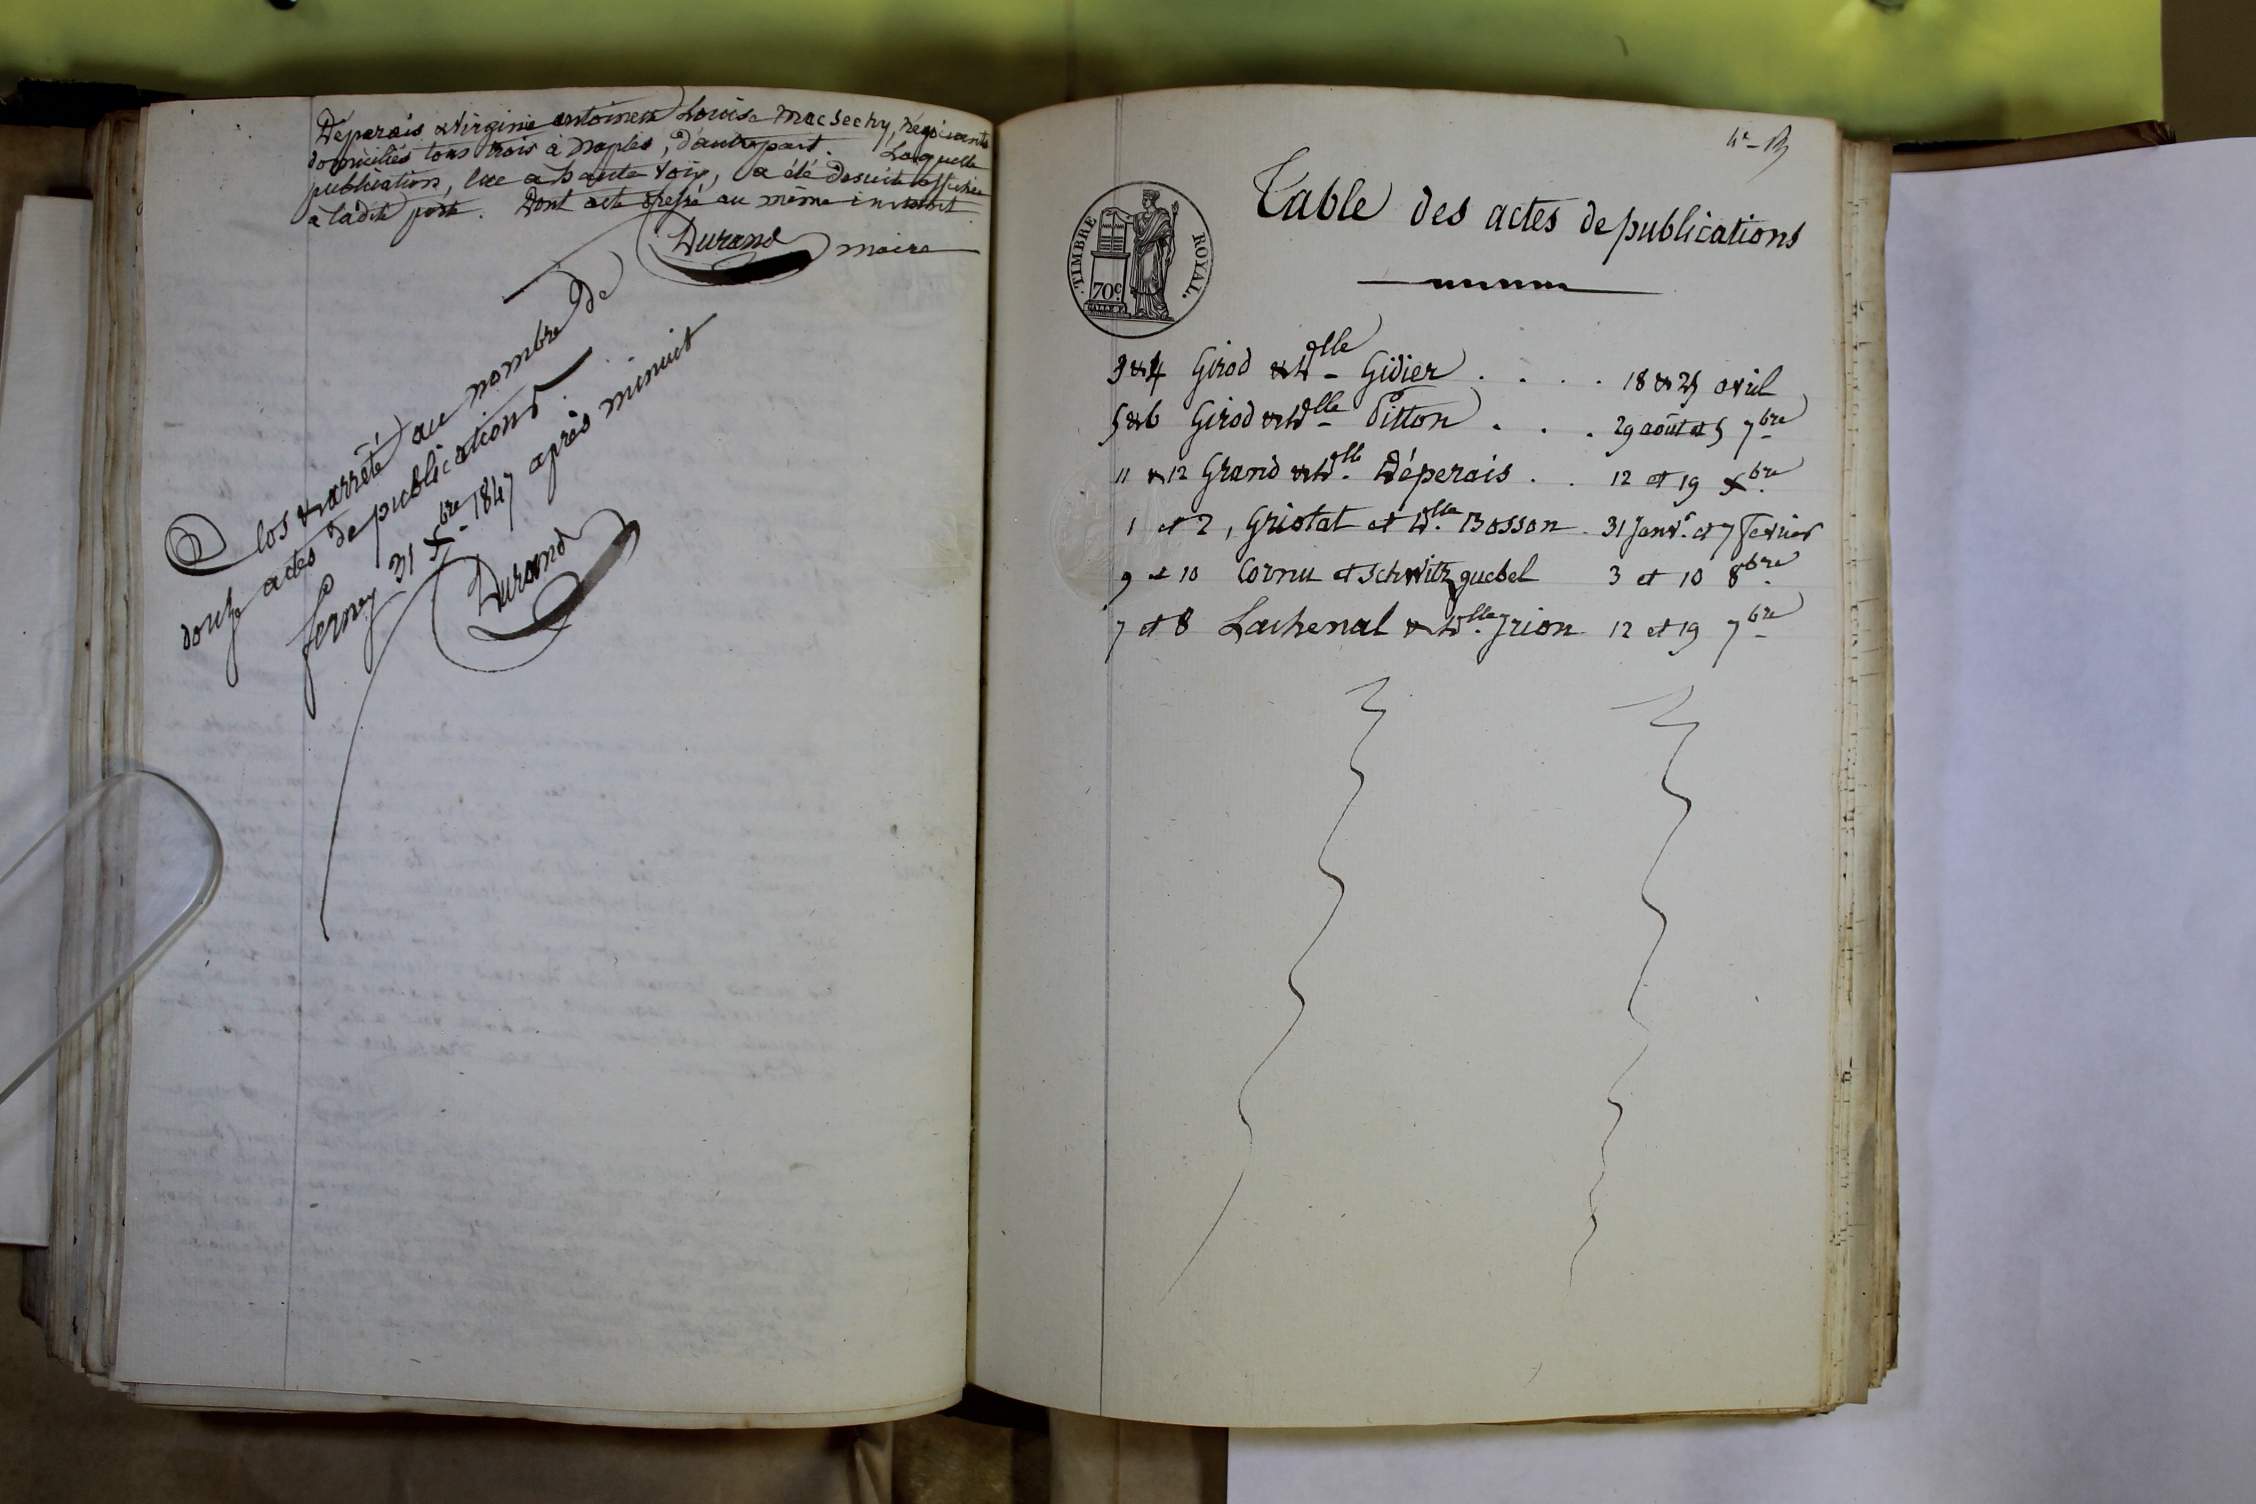 Déperais & Virginie antoinett Louise Macsechy, négociants
domiciliés tous trois à Naples, d'autre part. Laquelle
publication, lue à haute voix, a été desuite affichée
à ladite porte. Dont acte dressé au même instant.
Durand maire
Clos & arrêté au nombre de
douze actes de publications.
ferney 31 Xbre 1847 après minuit
Durand
Table des actes de publications
TIMBRE ROYAL.
70c
3 & 4 Girod & Dlle Gidier . . . . 18 & 25 avril
5 & 6 Girod & Dlle Pitton . . . 29 août et 5 7bre
11 & 12 Grand & Dlle Déperais . . 12 et 19 Xbre
1 et 2, Griotat et Dlle Bosson . 31 Janvr et 7 février
9 et 10 Cornu et Schwitzguebel 3 et 10 8bre
7 et 8 Lachenal & Dlle Jrion 12 et 19 7bre